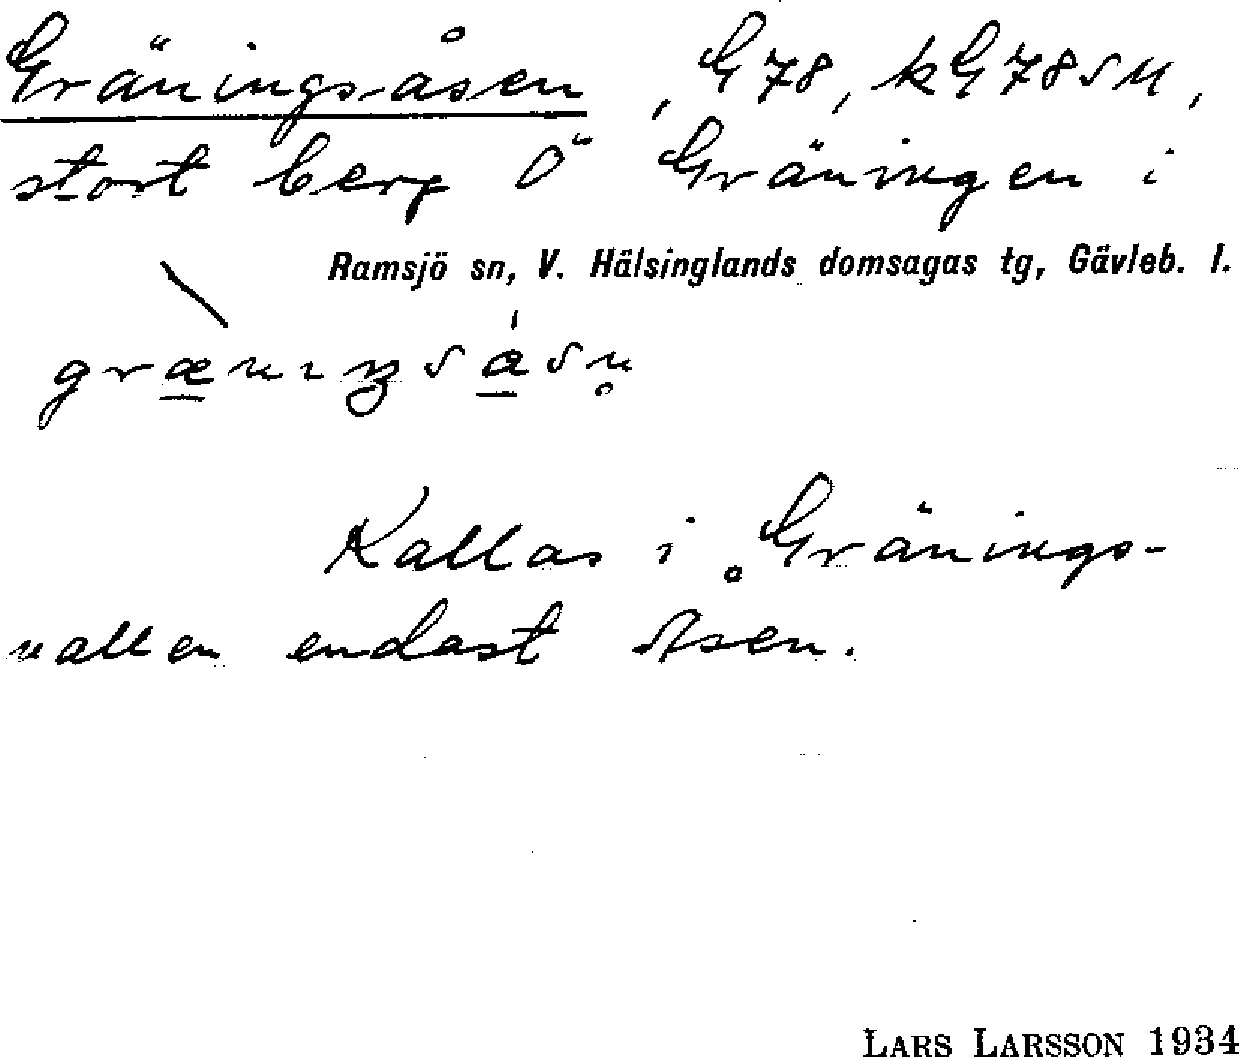 Gräningsåsen, G78, kG78SU,
stort berg Ö Gräningen i
Ramsjö sn, V. Hälsinglands domsagas tg, Gävleb. l.
Kallas i Gränings-
vallen endast Åsen.
LARS LARSSON 1934